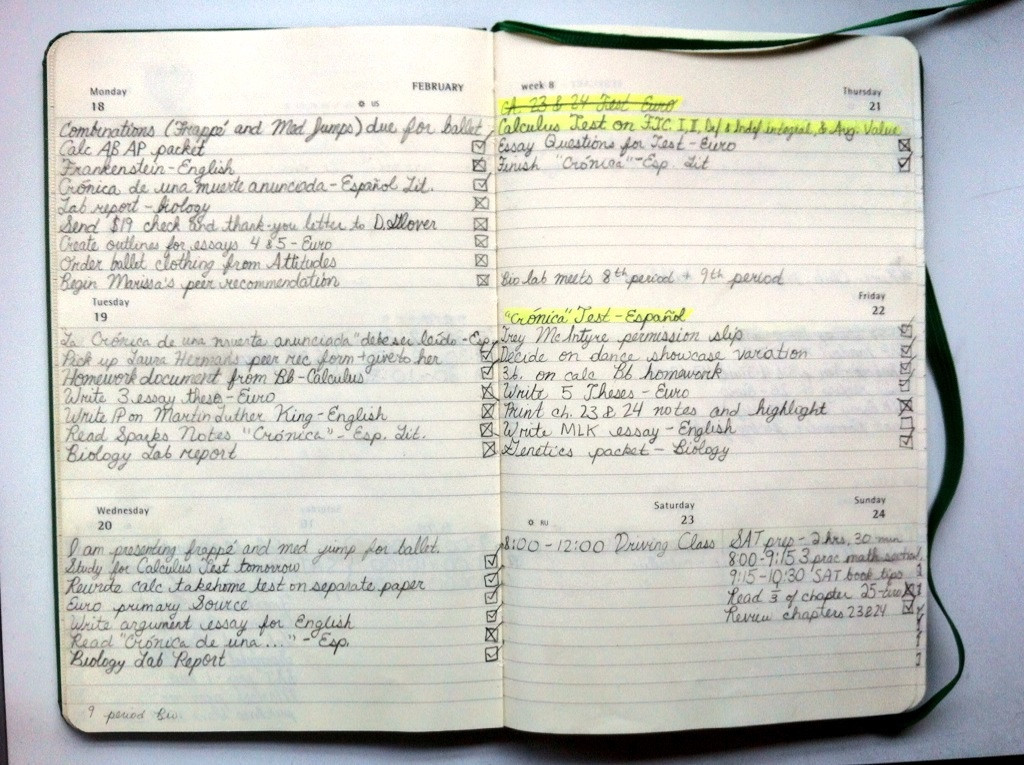 Monday
FEBRUARY
18
US
Combinations (Frappé and Med Jumps) due for ballet
Calc AB AP packet
Frankenstein - English
Crónica de una muerte anunciada - Español Lit.
Lab report - biology
Send $19 check and thank-you letter to D. Glover
Create outlines for essays 4 & 5 - Euro
Order ballet clothing from Attitudes
Begin Marissa's peer recommendation
Tuesday
19
La "Crónica de una muerte anunciada" debe ser leído - Esp
Pick up Laura Hermans peer rec form + give to her
Homework document from Bb - Calculus
Write 3 essay theses - Euro
Write IP on Martin Luther King - English
Read Sparks Notes "Crónica" - Esp. Lit.
Biology Lab report
Wednesday
20
I am presenting frappé and med jump for ballet.
Study for Calculus Test tomorrow
Rewrite calc takehome test on separate paper
Euro primary Source
Write argument essay for English
Read "Crónica de una..." - Esp.
Biology Lab Report
9 period Bio.
week 8
Thursday
21
Ch. 23 & 24 Test Euro
Calculus Test on FTC I, II, Def & Indef integral, & Avg. Value
Essay Questions for Test - Euro
Finish "Crónica" - Esp. Lit
Bio lab meets 8th period + 9th period
Friday
22
"Crónica" Test - Español
Trey McIntyre permission slip
Decide on dance showcase variation
3b. on calc Bb homework
Write 5 Theses - Euro
Print ch. 23 & 24 notes and highlight
Write MLK essay - English
Genetics packet - Biology
Saturday
23
RU
8:00 - 12:00 Driving Class
Sunday
24
SAT prep - 2 hrs, 30 min
8:00-9:15 3 prac math section
9:15-10:30 SAT book tips
Read of chapter 25
Review chapters 23 & 24